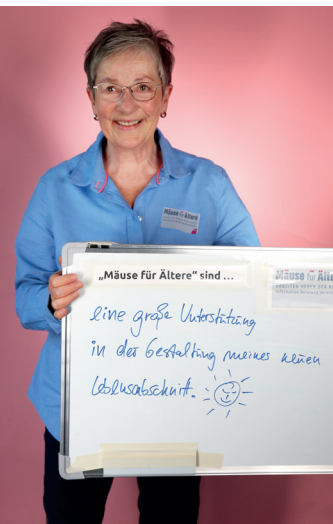 Mäuse für Ältere
„Mäuse für Ältere“ sind ...
Mäuse für Älte
eine große Unterstützung
in der Gestaltung meines neuen
Lebensabschnitt.